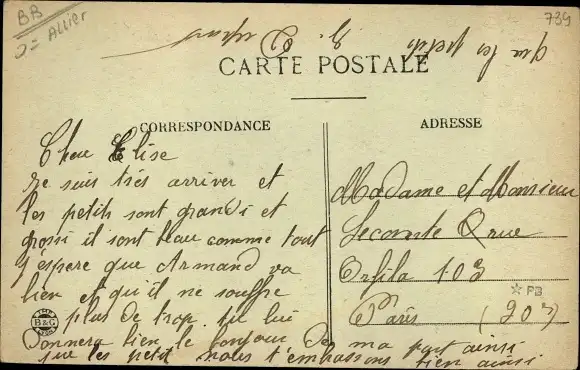 BB
J= Allier
739
que les petits
CARTE POSTALE
CORRESPONDANCE
ADRESSE
Chere Elise
je suis très arriver et
les petits sont grandi et
grossi il sont beau comme tout
j'espere que Armand va
bien et qu'il ne souffre
plus de trop. tu lui
donnera bien le bonjour De ma part ainsi
que les petit nous t'embrassons bien ainsi
Madame et Monsieur
Lecomte Q rue
Orfila 103
Paris (20
* PB
B&G